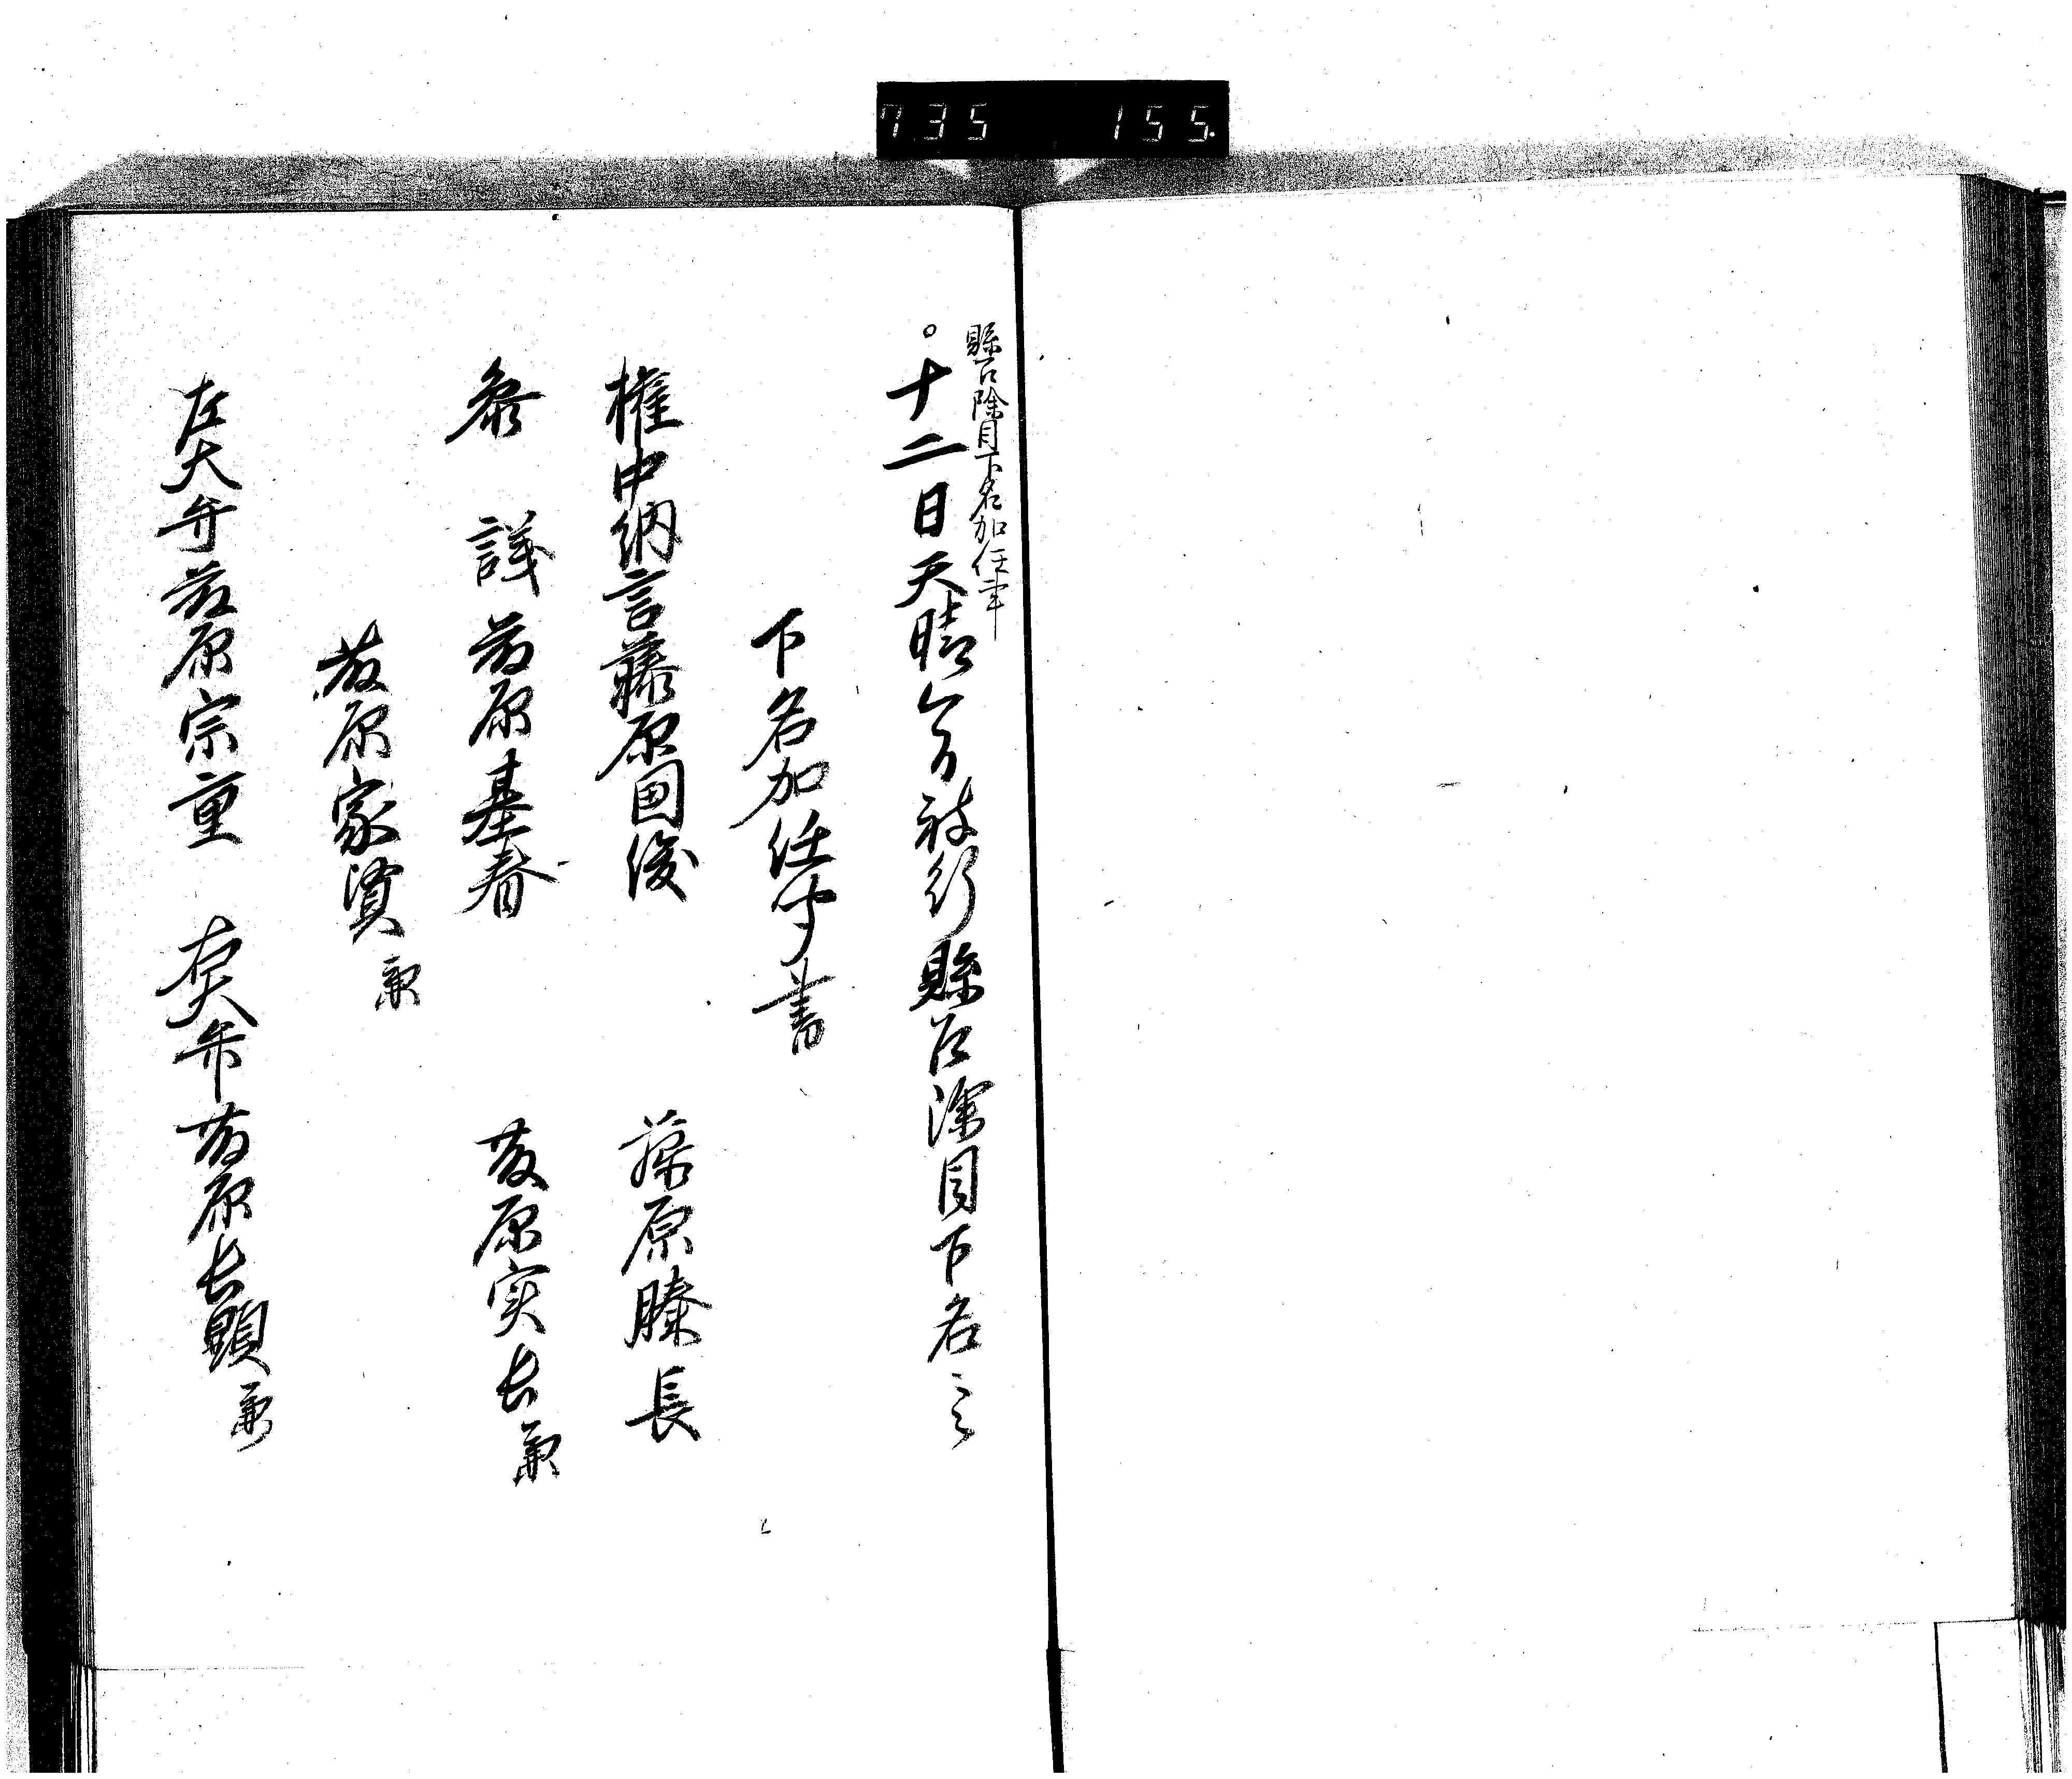 735 155
縣召除目下名加任事
。十二日天晴今日被行縣召除目下名云々
下名加任聞書
権中納言藤原国俊 藤原勝長
参議藤原基春 藤原実長兼
藤原家資兼
左大弁藤原宗重 右大弁藤原長顕兼